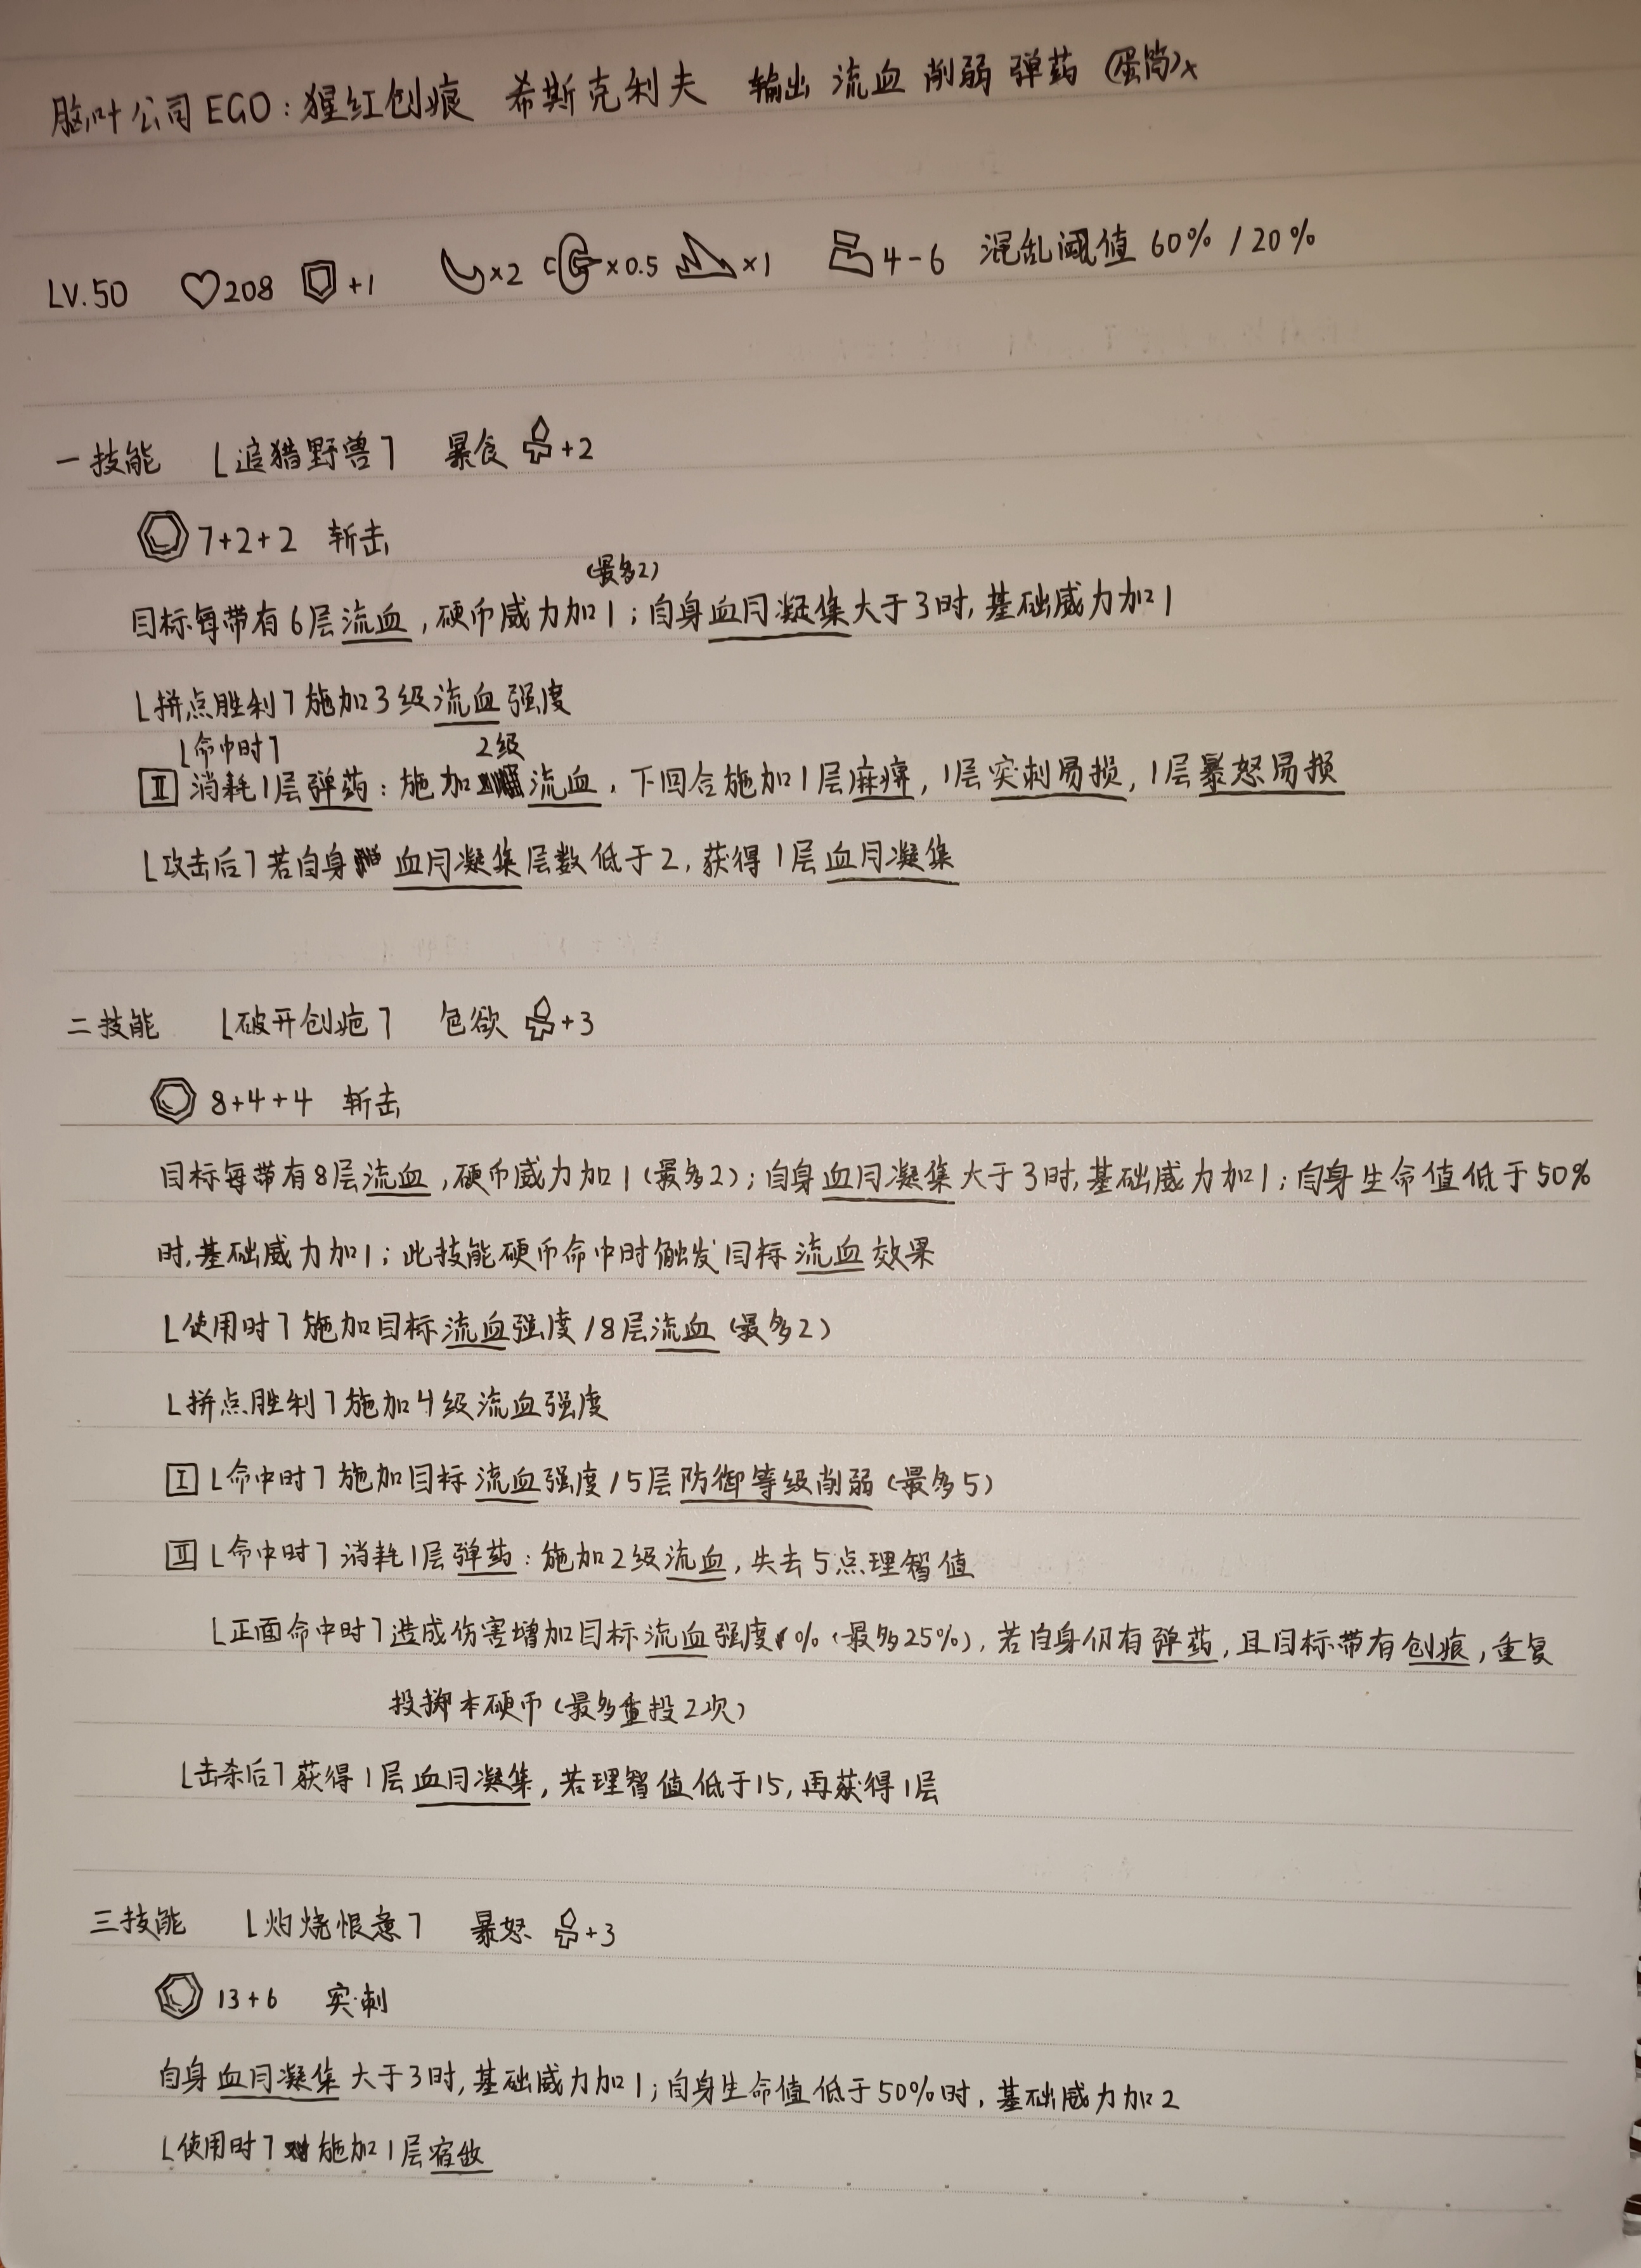 脑叶公司EGO:猩红创痕 希斯克利夫 输出 流血 削弱 弹药 (蛋筒)x
LV.50 208 +1 x2 x0.5 x1 4-6 混乱阈值 60% / 20%
一技能 [追猎野兽] 暴食 +2
7+2+2 斩击
(最多2)
目标每带有6层流血,硬币威力加1;自身血月凝集大于3时,基础威力加1
[拼点胜利]施加3级流血强度
[命中时] 2级
II 消耗1层弹药:施加流血,下回合施加1层麻痹,1层突刺易损,1层暴怒易损
[攻击后]若自身血月凝集层数低于2,获得1层血月凝集
二技能 [破开创疤] 色欲 +3
8+4+4 斩击
目标每带有8层流血,硬币威力加1(最多2);自身血月凝集大于3时,基础威力加1;自身生命值低于50%
时,基础威力加1;此技能硬币命中时触发目标流血效果
[使用时]施加目标流血强度/8层流血(最多2)
[拼点胜利]施加4级流血强度
I [命中时]施加目标流血强度/5层防御等级削弱(最多5)
II [命中时]消耗1层弹药:施加2级流血,失去5点理智值
[正面命中时]造成伤害增加目标流血强度%(最多25%),若自身仍有弹药,且目标带有创痕,重复
投掷本硬币(最多重投2次)
[击杀后]获得1层血月凝集,若理智值低于15,再获得1层
三技能 [灼烧恨意] 暴怒 +3
13+6 突刺
自身血月凝集大于3时,基础威力加1;自身生命值低于50%时,基础威力加2
[使用时]施加1层宿敌